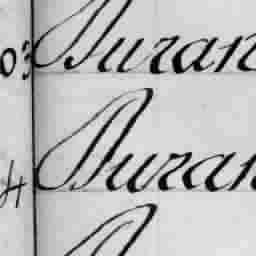 03 Duran
4 Duran